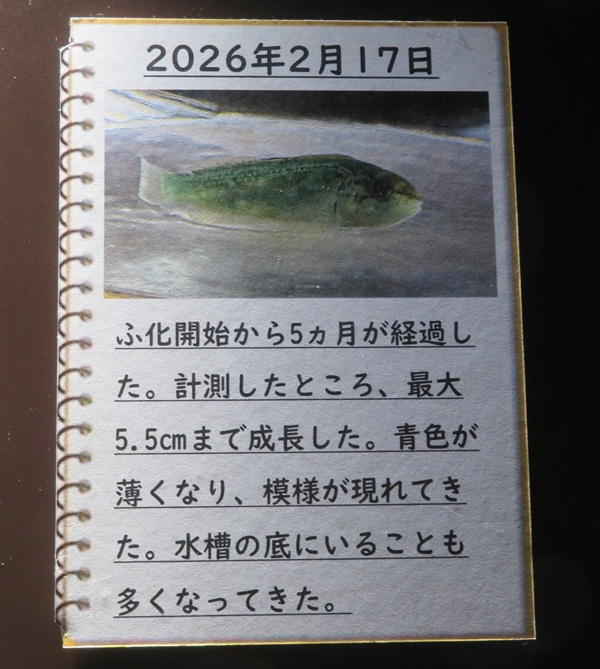 2026年2月17日
ふ化開始から5ヵ月が経過し
た。計測したところ、最大
5.5cmまで成長した。青色が
薄くなり、模様が現れてき
た。水槽の底にいることも
多くなってきた。